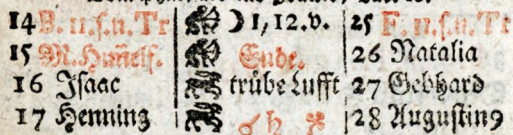 14 B. 11. s. n. Tr ☽ 1, 12. v. 25 F. 11. s. n. Tr
15 M. Him̃elf. Ende. 26 Natalia
16 Isaac trübe Lufft 27 Gebhard
17 Henning ♂ ♄ 28 Augustin9